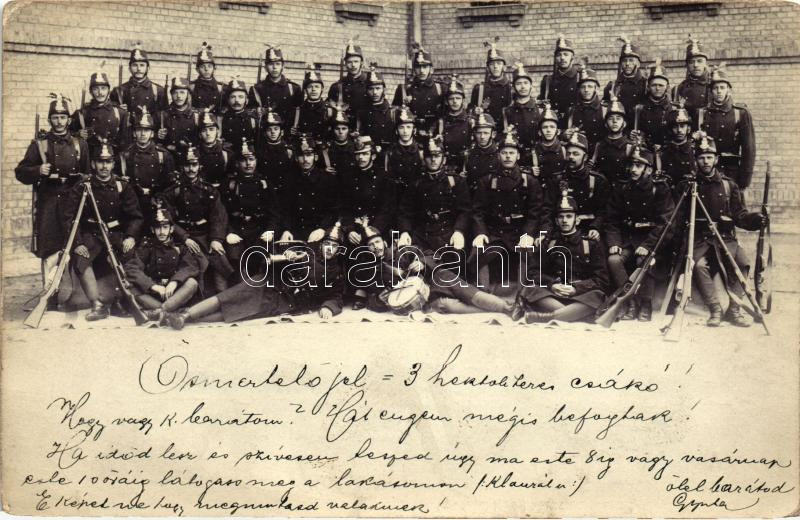 Ösmertetőjel = 3 hektoliteres csákó!
Hogy vagy k. barátom? Hát engem mégis befogtak!
Ha időd lesz és szívesen teszed úgy ma este 8ig vagy vasárnap
este 10 óráig látogass meg a lakásomon (: Klauzál u :)
ölel barátod
E képet ne hogy megmutasd valakinek!
Gyula
darabanth.com